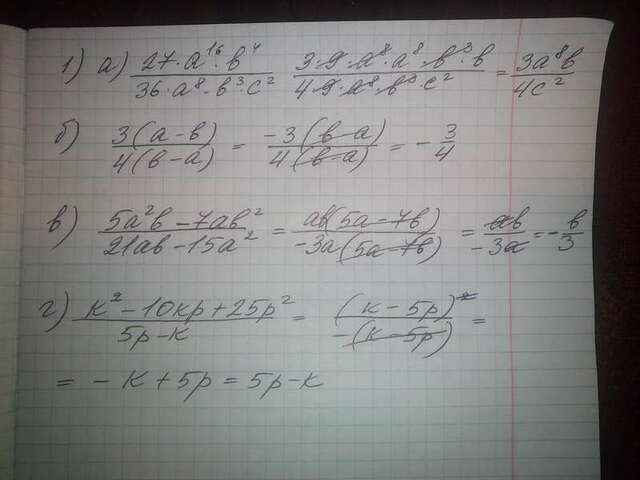 1) а) 27·a¹⁶·b⁴ / 36·a⁸·b³·c² 3·9·a⁸·a⁸·b³·b / 4·9·a⁸·b³·c² = 3a⁸b / 4c²
б) 3(a-b) / 4(b-a) = -3(b-a) / 4(b-a) = - 3/4
в) 5a²b-7ab² / 21ab-15a² = ab(5a-7b) / -3a(5a-7b) = ab / -3a = - b/3
г) k²-10kp+25p² / 5p-k = (k-5p)² / -(k-5p) =
= -k+5p = 5p-k